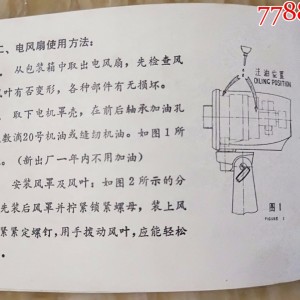 7788
二、电风扇使用方法:
从包装箱中取出电风扇,先检查风
叶有否变形,各种部件有无损坏。
取下电机罩壳,在前后轴承加油孔
数滴20号机油或缝纫机油。如图1所
。(新出厂一年内不用加油)
安装风罩及风叶:如图2所示的分
先装后风罩并拧紧锁紧螺母,装上风
紧紧定螺钉,用手拨动风叶,应能轻松
。
注油位置
OILING POSITION
图1
FIGURE 1